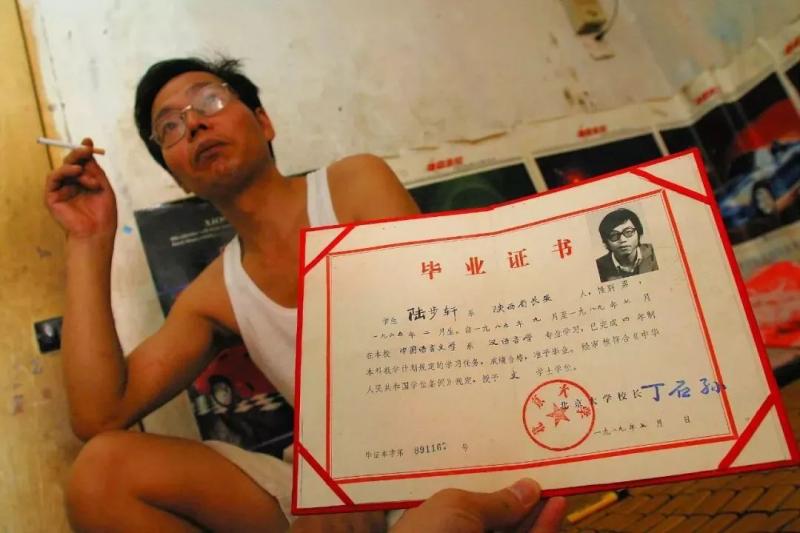 毕业证书
学生 陆步轩 系 陕西省长安 人，性别 男，
一九六五年 二 月生。自一九八五年 九 月至一九八九年 七 月
在本校 中国语言文学 系 汉语言学 专业学习，已完成 四 年制
本科教学计划规定的学习任务，成绩合格，准予毕业。经审核符合《中华
人民共和国学位条例》规定，授予 文 学士学位。
北京大学
北京大学校长 丁石孙
毕证本字第 号
一九八九年 七 月 日